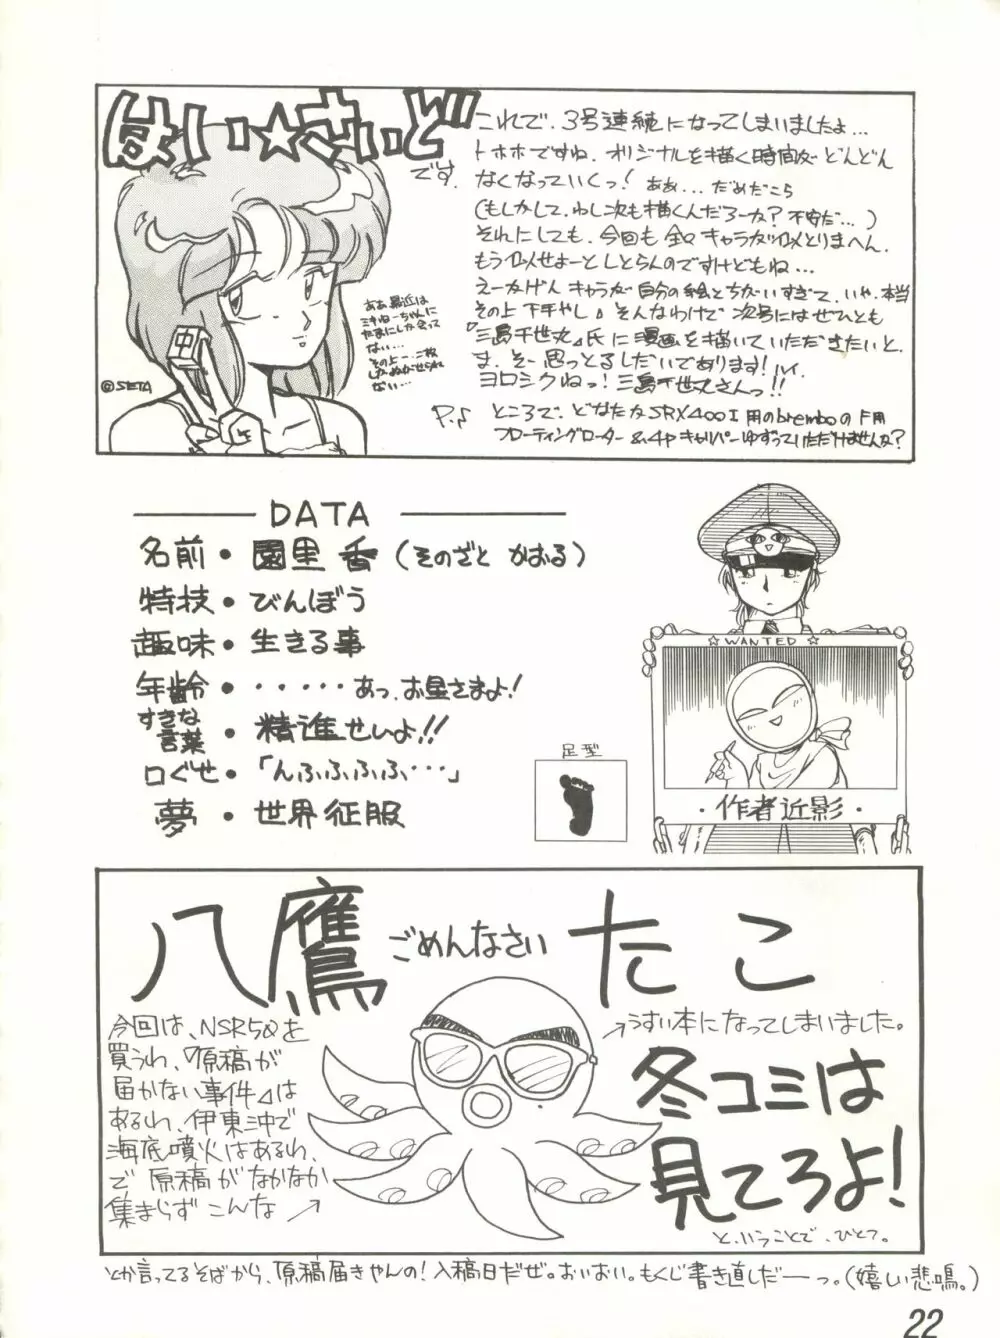 はい☆さいど
です。
これで、3号連続になってしまいましたよ…
トホホですね、オリジナルを描く時間がどんどん
なくなっていくっ! ああ…だめだこら
(もしかして、わし次も描くんだろーか? 不安だ…)
それにしても、今回も全々キャラがイメとりまへん、
もうイメせよーとしとらんのですけどもね…
えーかげんキャラが自分の絵とちがいすぎて、いや、本当
その上下手やし。そんなわけで次号にはぜひとも
『三島千世丸』氏に漫画を描いていただきたいと、
ま、そー思っとるしだいであります! ハイ、
ヨロシクねっ! 三島千世丸さんっ!!
P.♪ ところで、どなたかSRX400I用のbremboのF用
フローティングローター&4pキャリパーゆずっていただけませんか?
ああ最近は
ミキねーちゃんに
たまにしか会って
ない…
その上…二枚
しかぬがせられ
ない…
中
©SETA
DATA
名前・園里 香(そのざと かおる)
特技・びんぼう
趣味・生きる事
年齢・・・・・・あっ、お星さまよ!
すきな
言葉・精進せいよ!!
口ぐせ・「んふふふふ…」
夢・世界征服
足型
☆WANTED☆
・作者近影・
八鷹 ごめんなさい たこ
今回は、NSR50を
買うわ、『原稿が
届かない事件』は
あるわ、伊東沖で
海底噴火はあるわ、
で 原稿がなかなか
集まらず こんな↗
↗うすい本になってしまいました。
冬コミは
見てろよ!
と、いうことで、ひとつ。
とか言ってるそばから、原稿届きやんの! 入稿日だぜ。おいおい。もくじ書き直しだーっ。(嬉しい悲鳴。)
22